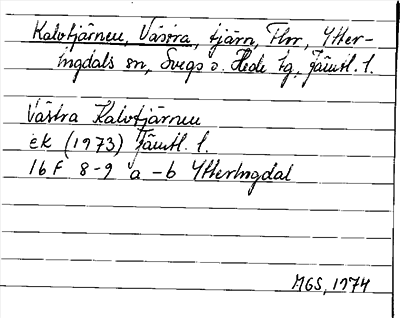 Kalvtjärnen, Västra, tjärn, Hrr, Ytter-
ingdals sn, Svegs o. Hede tg, Jämtl. l.
Västra Kalvtjärnen
ek (1973) Jämtl. l.
16 F 8-9 a-b Ytteringdal
MGS, 1974